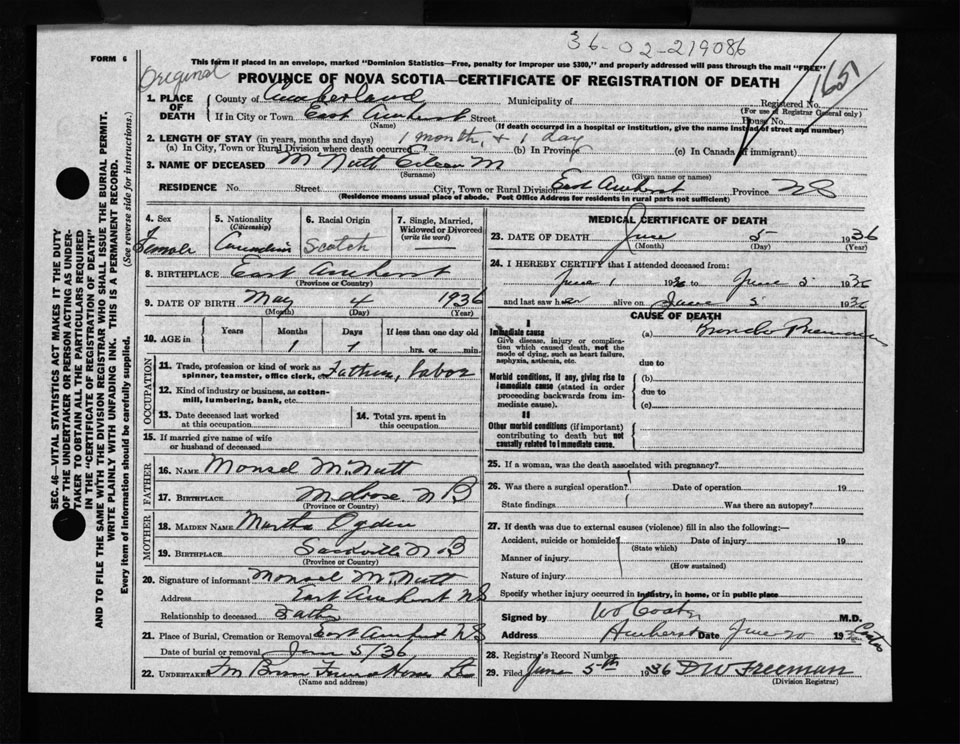 36-02-219086
FORM 6
This form if placed in an envelope, marked "Dominion Statistics—Free, penalty for improper use $300," and properly addressed will pass through the mail "FREE"
Original
PROVINCE OF NOVA SCOTIA—CERTIFICATE OF REGISTRATION OF DEATH
165
1. PLACE OF DEATH
County of Cumberland Municipality of Registered No.
(For use of Registrar General only)
If in City or Town East Amherst Street House No.
(Name) (If death occurred in a hospital or institution, give the name instead of street and number)
2. LENGTH OF STAY (in years, months and days) 1 month, + 1 day
(a) In City, Town or Rural Division where death occurred (b) In Province (c) In Canada (if immigrant)
3. NAME OF DECEASED McNutt Eileen M
(Surname) (Given name or names)
RESIDENCE No. Street City, Town or Rural Division East Amherst Province NS
(Residence means usual place of abode. Post Office Address for residents in rural parts not sufficient)
SEC. 46—VITAL STATISTICS ACT MAKES IT THE DUTY
OF THE UNDERTAKER OR PERSON ACTING AS UNDER-
TAKER TO OBTAIN ALL THE PARTICULARS REQUIRED
IN THE "CERTIFICATE OF REGISTRATION OF DEATH"
AND TO FILE THE SAME WITH THE DIVISION REGISTRAR WHO SHALL ISSUE THE BURIAL PERMIT.
WRITE PLAINLY WITH UNFADING INK. THIS IS A PERMANENT RECORD.
Every item of information should be carefully supplied. (See reverse side for instructions.)
4. Sex Female
5. Nationality (Citizenship) Canadian
6. Racial Origin Scotch
7. Single, Married, Widowed or Divorced (write the word) —
8. BIRTHPLACE East Amherst
(Province or Country)
9. DATE OF BIRTH May 4 1936
(Month) (Day) (Year)
10. AGE in Years Months Days If less than one day old
1 1 hrs. or min.
OCCUPATION
11. Trade, profession or kind of work as spinner, teamster, office clerk, etc. Father, labor
12. Kind of industry or business, as cotton-mill, lumbering, bank, etc.
13. Date deceased last worked at this occupation
14. Total yrs. spent in this occupation
15. If married give name of wife or husband of deceased
FATHER
16. NAME Monsel McNutt
17. BIRTHPLACE Melrose N B
(Province or Country)
MOTHER
18. MAIDEN NAME Martha Ogden
19. BIRTHPLACE Sackville N B
(Province or Country)
20. Signature of informant Monsel McNutt
Address East Amherst NS
Relationship to deceased Father
21. Place of Burial, Cremation or Removal East Amherst NS
Date of burial or removal June 5/36
22. UNDERTAKER
(Name and address)
MEDICAL CERTIFICATE OF DEATH
23. DATE OF DEATH June 5 1936
(Month) (Day) (Year)
24. I HEREBY CERTIFY that I attended deceased from:
June 1 1936 to June 5 1936
and last saw her alive on June 5 1936
CAUSE OF DEATH
I
Immediate cause
Give disease, injury or complication which caused death, not the mode of dying, such as heart failure, asphyxia, asthenia, etc.
(a) Broncho Pneumonia
due to
Morbid conditions, if any, giving rise to immediate cause (stated in order proceeding backwards from immediate cause).
(b)
due to
(c)
II
Other morbid conditions (if important) contributing to death but not causally related to immediate cause.
25. If a woman, was the death associated with pregnancy?
26. Was there a surgical operation? Date of operation 19
State findings Was there an autopsy?
27. If death was due to external causes (violence) fill in also the following:—
Accident, suicide or homicide Date of injury 19
(State which)
Manner of injury
(How sustained)
Nature of injury
Specify whether injury occurred in industry, in home, or in public place
Signed by M.D.
Address Amherst Date June 19
28. Registrar's Record Number
29. Filed June 5th 1936 D W Freeman
(Division Registrar)